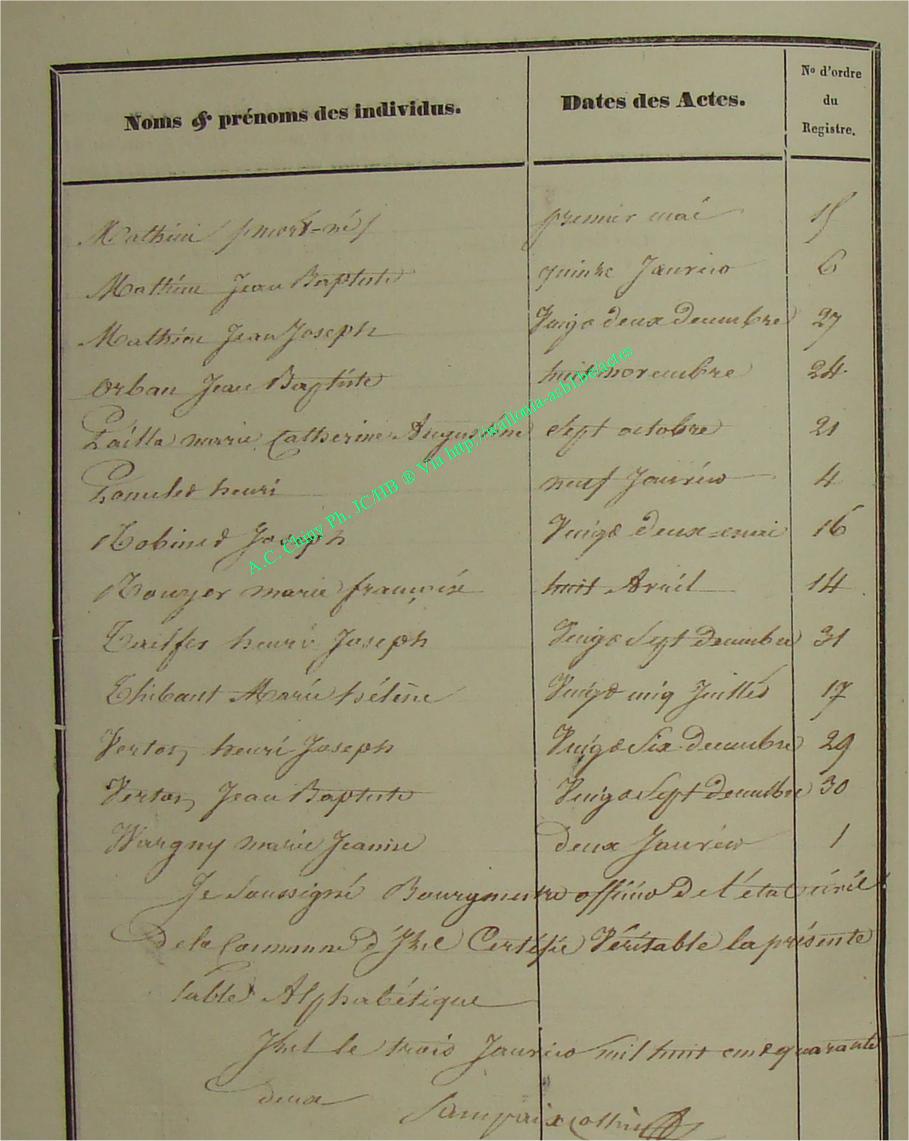 Noms & prénoms des individus. Dates des Actes. No d'ordre
du
Registre.
Mathieu (mort-né) premier mai 15
Mathieu Jean Baptiste quinze Janvier 6
Mathieu Jean Joseph Vingt deux Decembre 27
Orban Jean Baptiste huit novembre 24
marie Catherine Augustine Sept octobre 21
henri neuf Janvier 4
Robinet Joseph Vingt deux mai 16
Rouyer marie françoise huit Avril 14
henri Joseph Vingt Sept decembre 31
Thibaut Marie héléne Vingt cinq Juillet 17
henri Joseph Vingt Six decembre 29
Jean Baptiste Vingt Sept decembre 30
Wargny marie Jeanne deux Janvier 1
Je Soussigné Bourgmestre officier de l'état civil
de la Commune d'Izel Certifie Véritable la présente
table Alphabétique
Izel le trois Janvier mil huit cent quarante
deux
A.C. Chiny Ph. JC/HB ® Via http://wallonia-asbl.be/actes